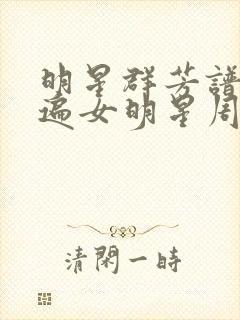 明星群芳譜
遍女明星周
清閑一時